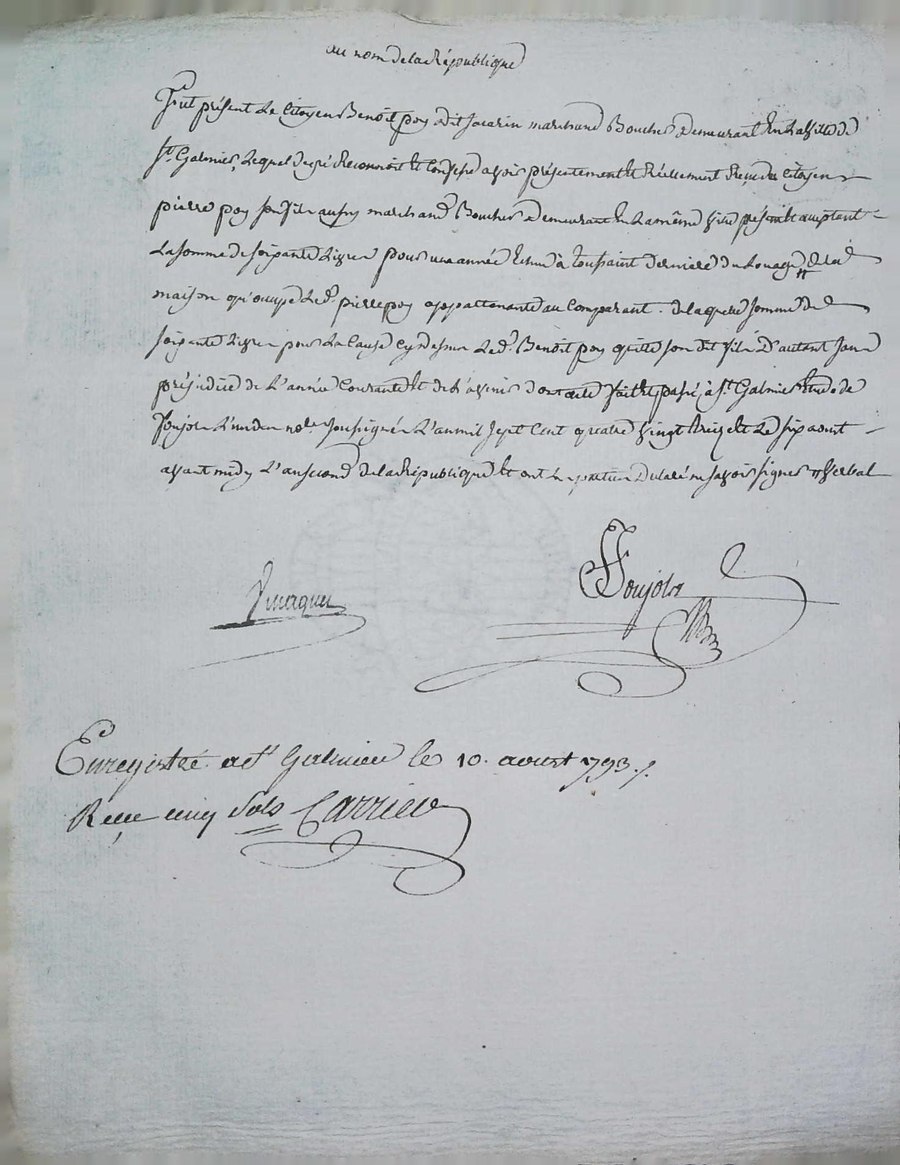 au nom de la République
Fut présent le Citoyen Benoit poy dit Jacarin marchand Boucher demeurant en la ville de
St. Galmier, lequel de gré Reconnoit et Confesse avoir présentement et Réellement Reçu du Citoyen
pierre poy son fils aussy marchand Boucher demeurant en la même ville présent et acceptant
La somme de soixante Livres pour une année Echue à toussaint derniere du Louage de la
maison qu'occupe led. pierre poy appartenante au Comparant. de laquelle somme de
soixante Livres pour la Cause cy dessus led. Benoit poy quitte son dit fils d'autant sans
préjudice de L'année Courante et de L'avenir dont acte fait et passé à St. Galmier Etude de
Ponjols L'un des nores soussignés L'an mil sept Cent quatre vingt treize et le six aout
avant midy L'an second de la République et ont les parties déclaré ne savoir signer verbal
Ponjols
Enregistré a St Galmier le 10. aoust 1793.
Reçu cinq sols Carrier